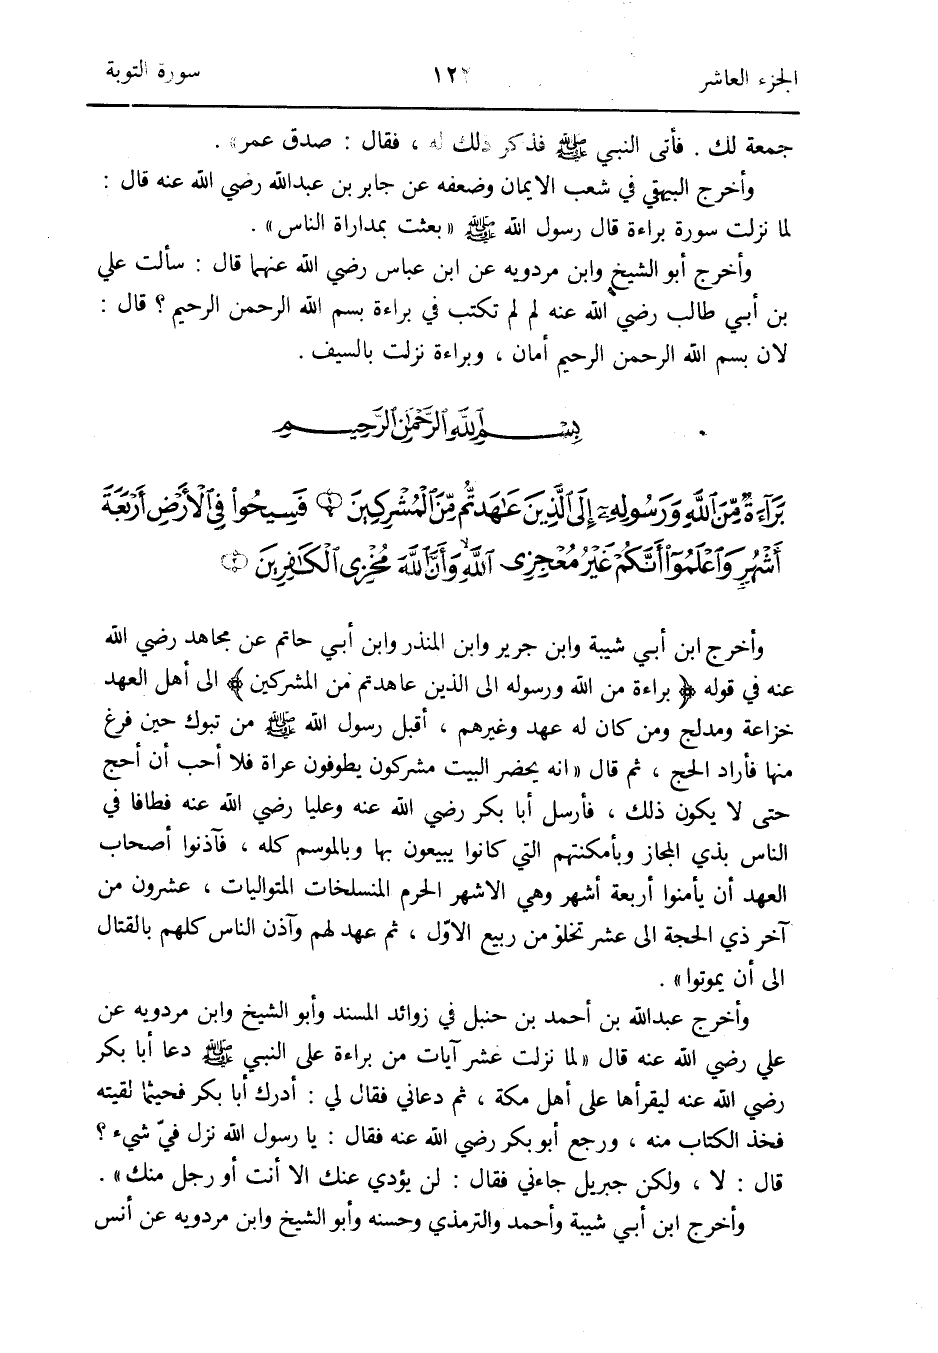 الجزء العاشر ١٢ سورة التوبة
جمعة لك . فأتى النبي ﷺ فذكر ذلك له ، فقال : صدق عمر» .
وأخرج البيهقي في شعب الايمان وضعفه عن جابر بن عبدالله رضي الله عنه قال :
لما نزلت سورة براءة قال رسول الله ﷺ «بعثت بمداراة الناس» .
وأخرج أبو الشيخ وابن مردويه عن ابن عباس رضي الله عنهما قال : سألت علي
بن أبي طالب رضي الله عنه لم لم تكتب في براءة بسم الله الرحمن الرحيم ؟ قال :
لان بسم الله الرحمن الرحيم أمان ، وبراءة نزلت بالسيف .
بِسْمِ اللَّهِ الرَّحْمَٰنِ الرَّحِيمِ
بَرَآءَةٌ مِّنَ ٱللَّهِ وَرَسُولِهِۦٓ إِلَى ٱلَّذِينَ عَٰهَدتُّم مِّنَ ٱلْمُشْرِكِينَ ﴿١﴾ فَسِيحُوا۟ فِى ٱلْأَرْضِ أَرْبَعَةَ
أَشْهُرٍ وَٱعْلَمُوٓا۟ أَنَّكُمْ غَيْرُ مُعْجِزِى ٱللَّهِ ۙ وَأَنَّ ٱللَّهَ مُخْزِى ٱلْكَٰفِرِينَ ﴿٢﴾
وأخرج ابن أبي شيبة وابن جرير وابن المنذر وابن أبي حاتم عن مجاهد رضي الله
عنه في قوله ﴿ براءة من الله ورسوله الى الذين عاهدتم من المشركين ﴾ الى أهل العهد
خزاعة ومدلج ومن كان له عهد وغيرهم ، أقبل رسول الله ﷺ من تبوك حين فرغ
منها فأراد الحج ، ثم قال «انه يحضر البيت مشركون يطوفون عراة فلا أحب أن أحج
حتى لا يكون ذلك ، فأرسل أبا بكر رضي الله عنه وعليا رضي الله عنه فطافا في
الناس بذي المجاز وبأمكنتهم التي كانوا يبيعون بها وبالموسم كله ، فآذنوا أصحاب
العهد أن يأمنوا أربعة أشهر وهي الاشهر الحرم المنسلخات المتواليات ، عشرون من
آخر ذي الحجة الى عشر تخلو من ربيع الاوّل ، ثم عهد لهم وآذن الناس كلهم بالقتال
الى أن يموتوا» .
وأخرج عبدالله بن أحمد بن حنبل في زوائد المسند وأبو الشيخ وابن مردويه عن
علي رضي الله عنه قال «لما نزلت عشر آيات من براءة على النبي ﷺ دعا أبا بكر
رضي الله عنه ليقرأها على أهل مكة ، ثم دعاني فقال لي : أدرك أبا بكر فحيثما لقيته
فخذ الكتاب منه ، ورجع أبو بكر رضي الله عنه فقال : يا رسول الله نزل فيّ شيء ؟
قال : لا ، ولكن جبريل جاءني فقال : لن يؤدي عنك الا أنت أو رجل منك» .
وأخرج ابن أبي شيبة وأحمد والترمذي وحسنه وأبو الشيخ وابن مردويه عن أنس